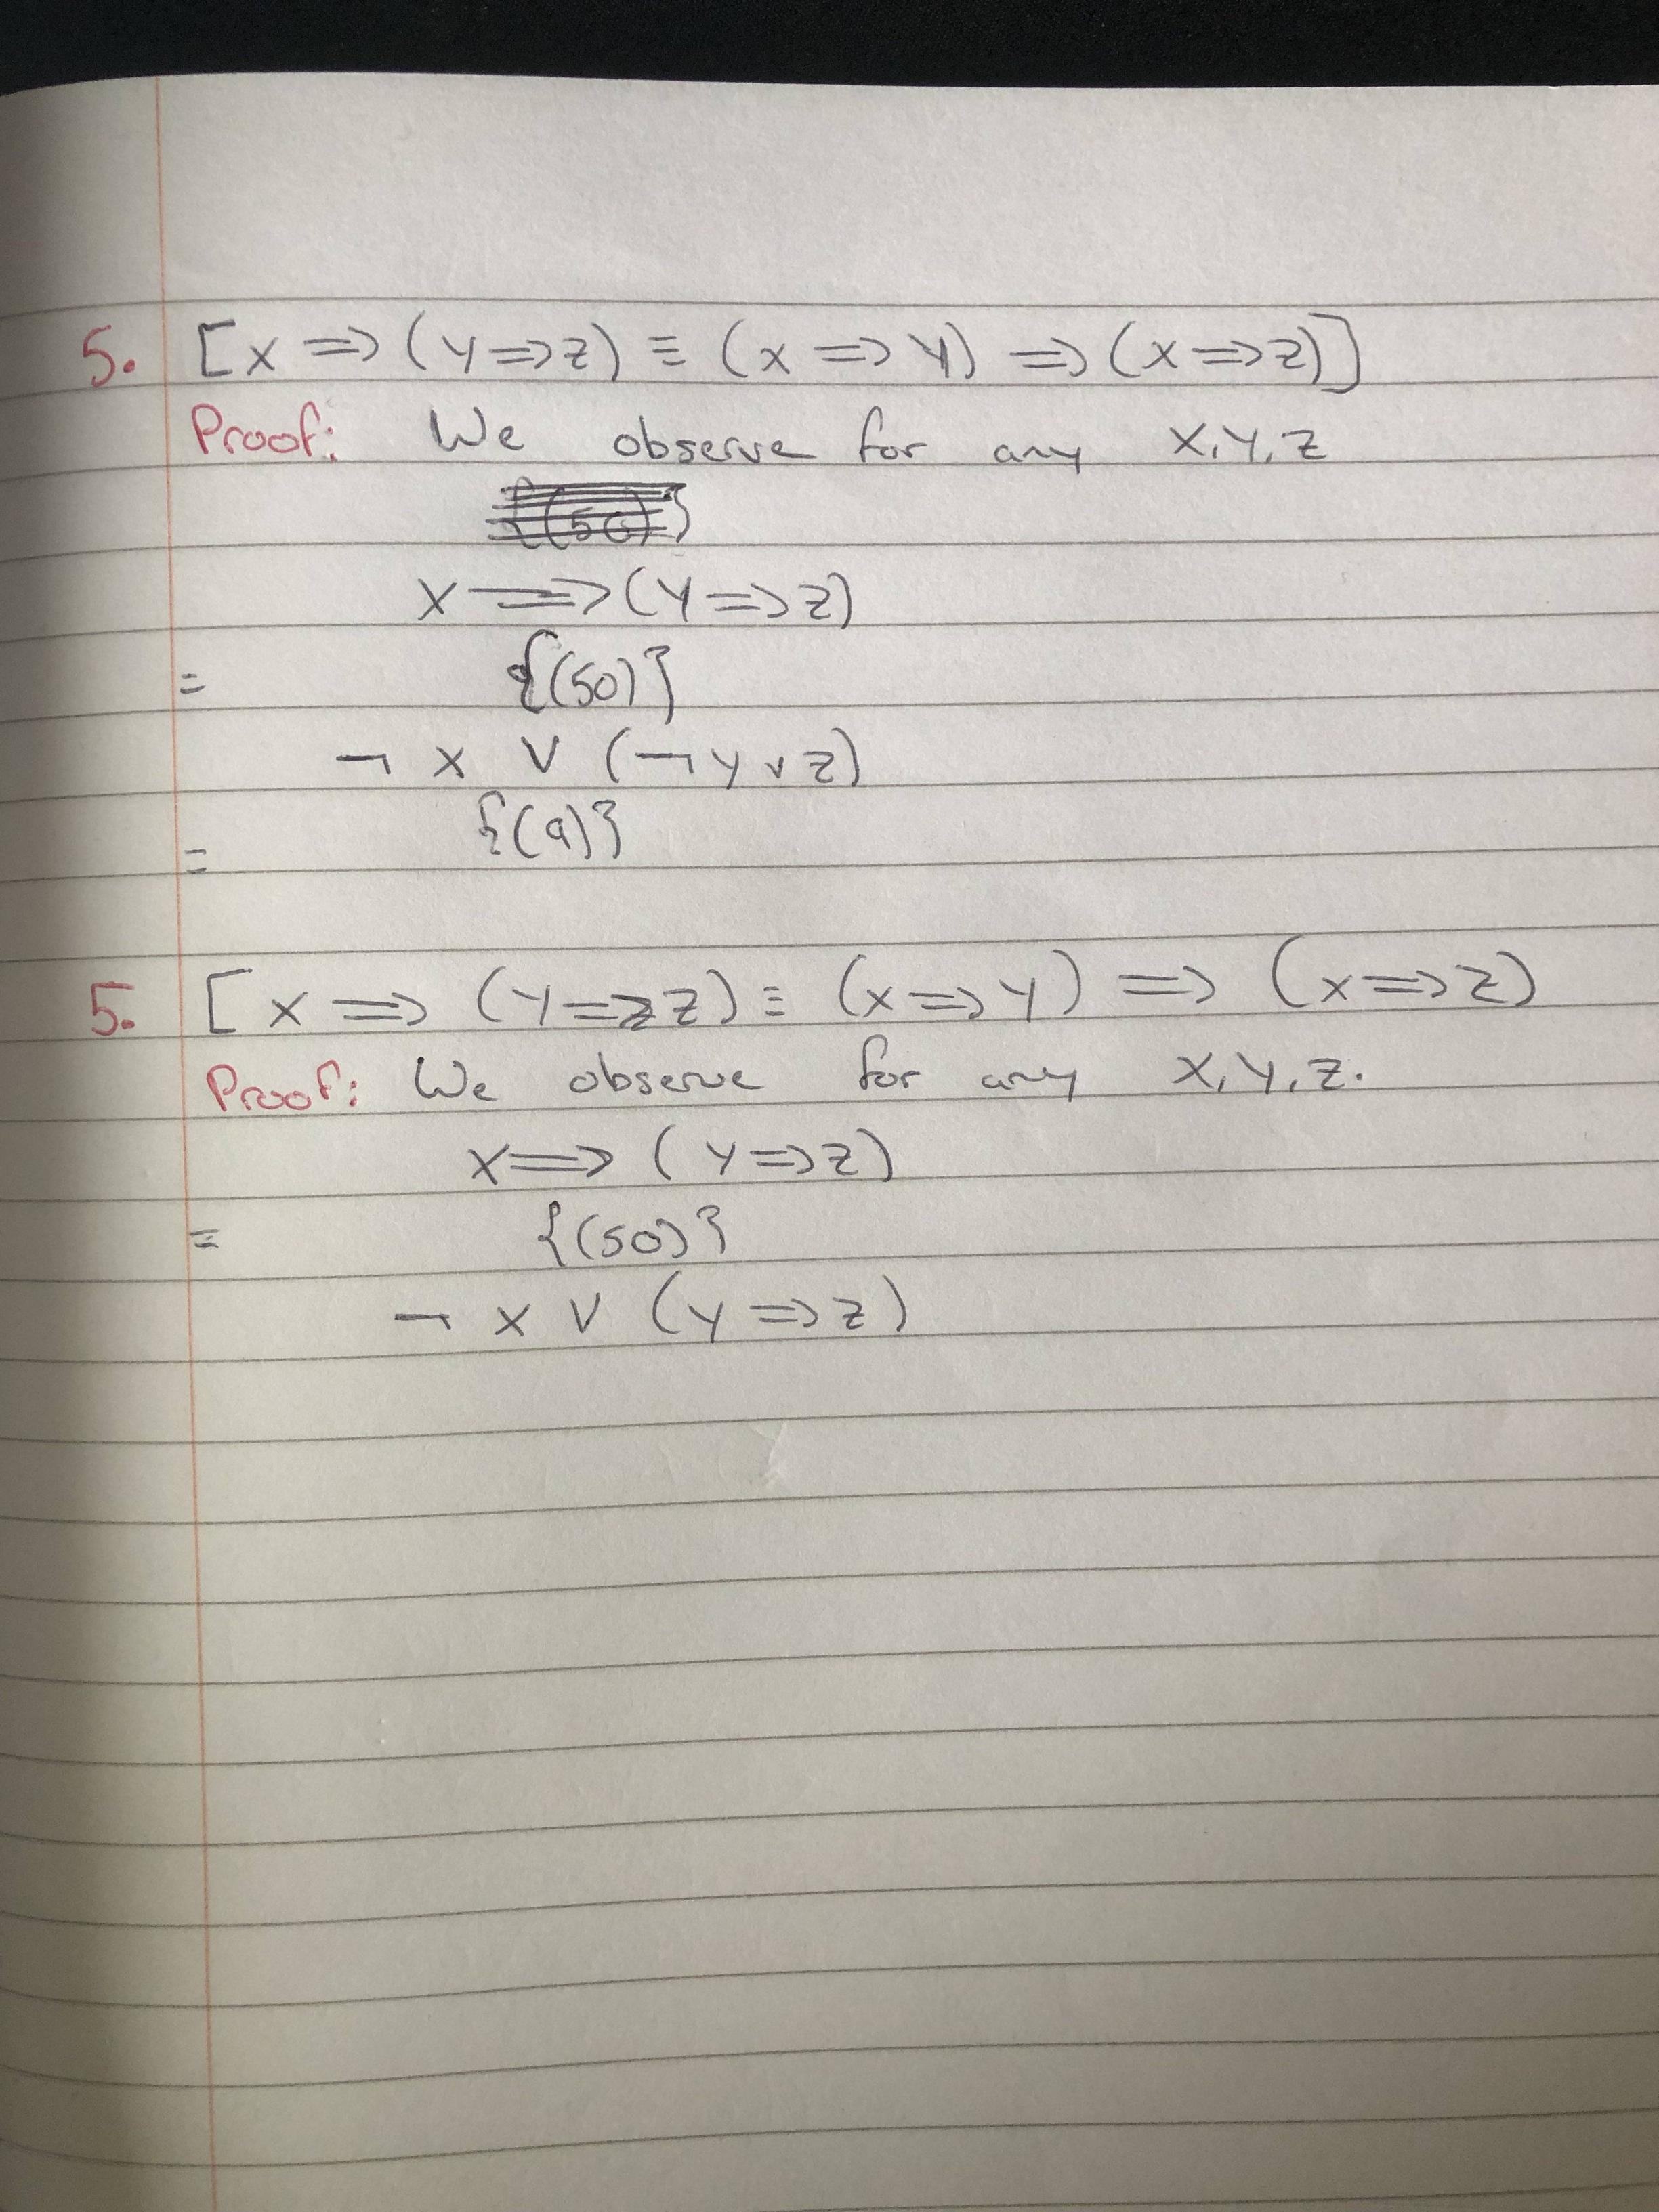 5. [X => (Y => Z) ≡ (X => Y) => (X => Z)]
Proof: We observe for any X, Y, Z
{(50)}
X => (Y => Z)
= {(50)}
¬ X ∨ (¬ Y ∨ Z)
= {(9)}
5. [X => (Y => Z) ≡ (X => Y) => (X => Z)
Proof: We observe for any X, Y, Z.
X => (Y => Z)
= {(50)}
¬ X ∨ (Y => Z)